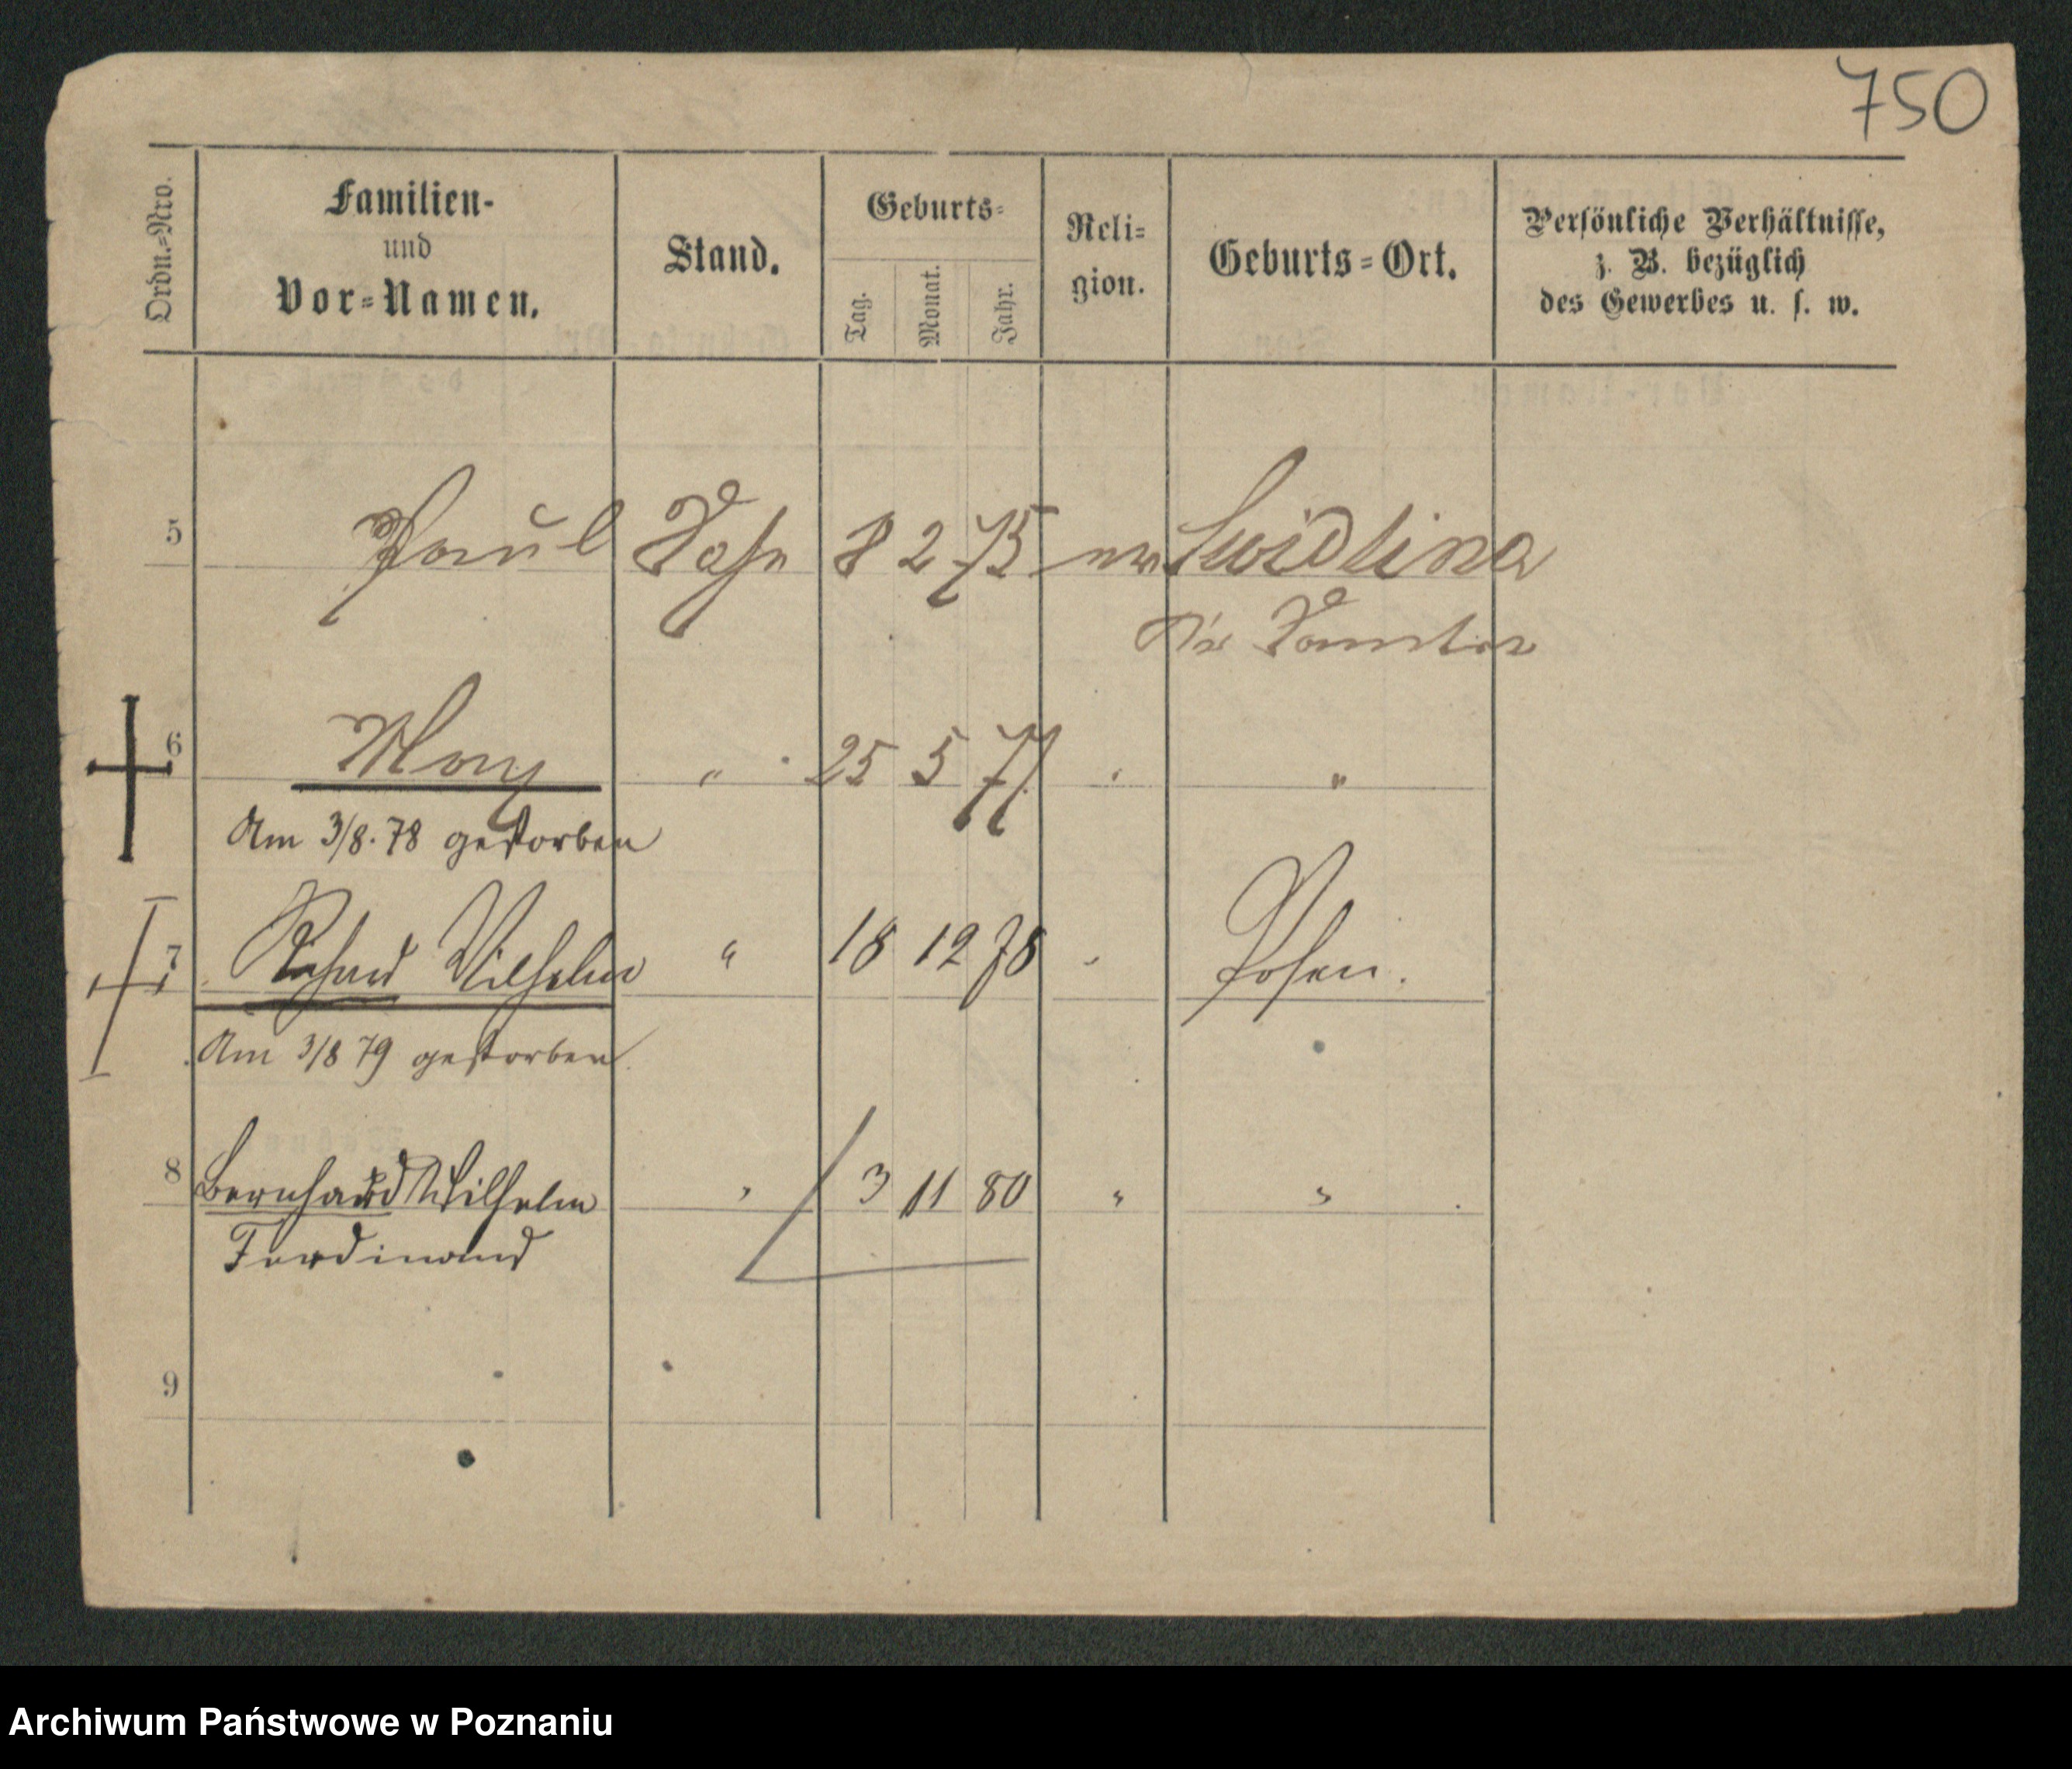 750
Ordn.=Nro.
Familien-
und
Vor=Namen.
Stand.
Geburts=
Tag.
Monat.
Jahr.
Reli=
gion.
Geburts=Ort.
Persönliche Verhältnisse,
z. B. bezüglich
des Gewerbes u. s. w.
5 Paul Sohn 8 2 75 ev
6 Max " 25 5 77 " "
Am 3/8. 78 gestorben
7 Richard Wilhelm " 18 12 78 " Posen.
Am 3/8 79 gestorben.
8 Bernhard Wilhelm " 3 11 80 " "
Ferdinand
9
Archiwum Państwowe w Poznaniu